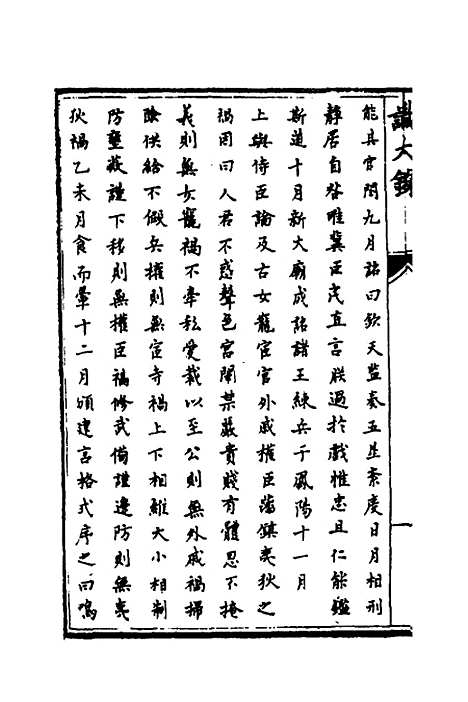 識大錄
能其官閏九月詔曰欽天監奏五星紊度日月相刑
靜居自咎唯冀臣民直言朕過於戲惟忠且仁能鑑
斯道十月新大廟成詔諸王練兵于鳳陽十一月
上與侍臣論及古女寵宦官外戚權臣藩鎮夷狄之
禍因曰人君不惑聲色宮闈禁嚴貴賤有體恩不掩
義則無女寵禍不牽私愛裁以至公則無外戚禍掃
除供給不假兵權則無宦寺禍上下相維大小相制
防壅蔽謹下移則無權臣禍修武備謹邊防則無夷
狄禍乙未月食而暈十二月頒建言格式序之曰鳴